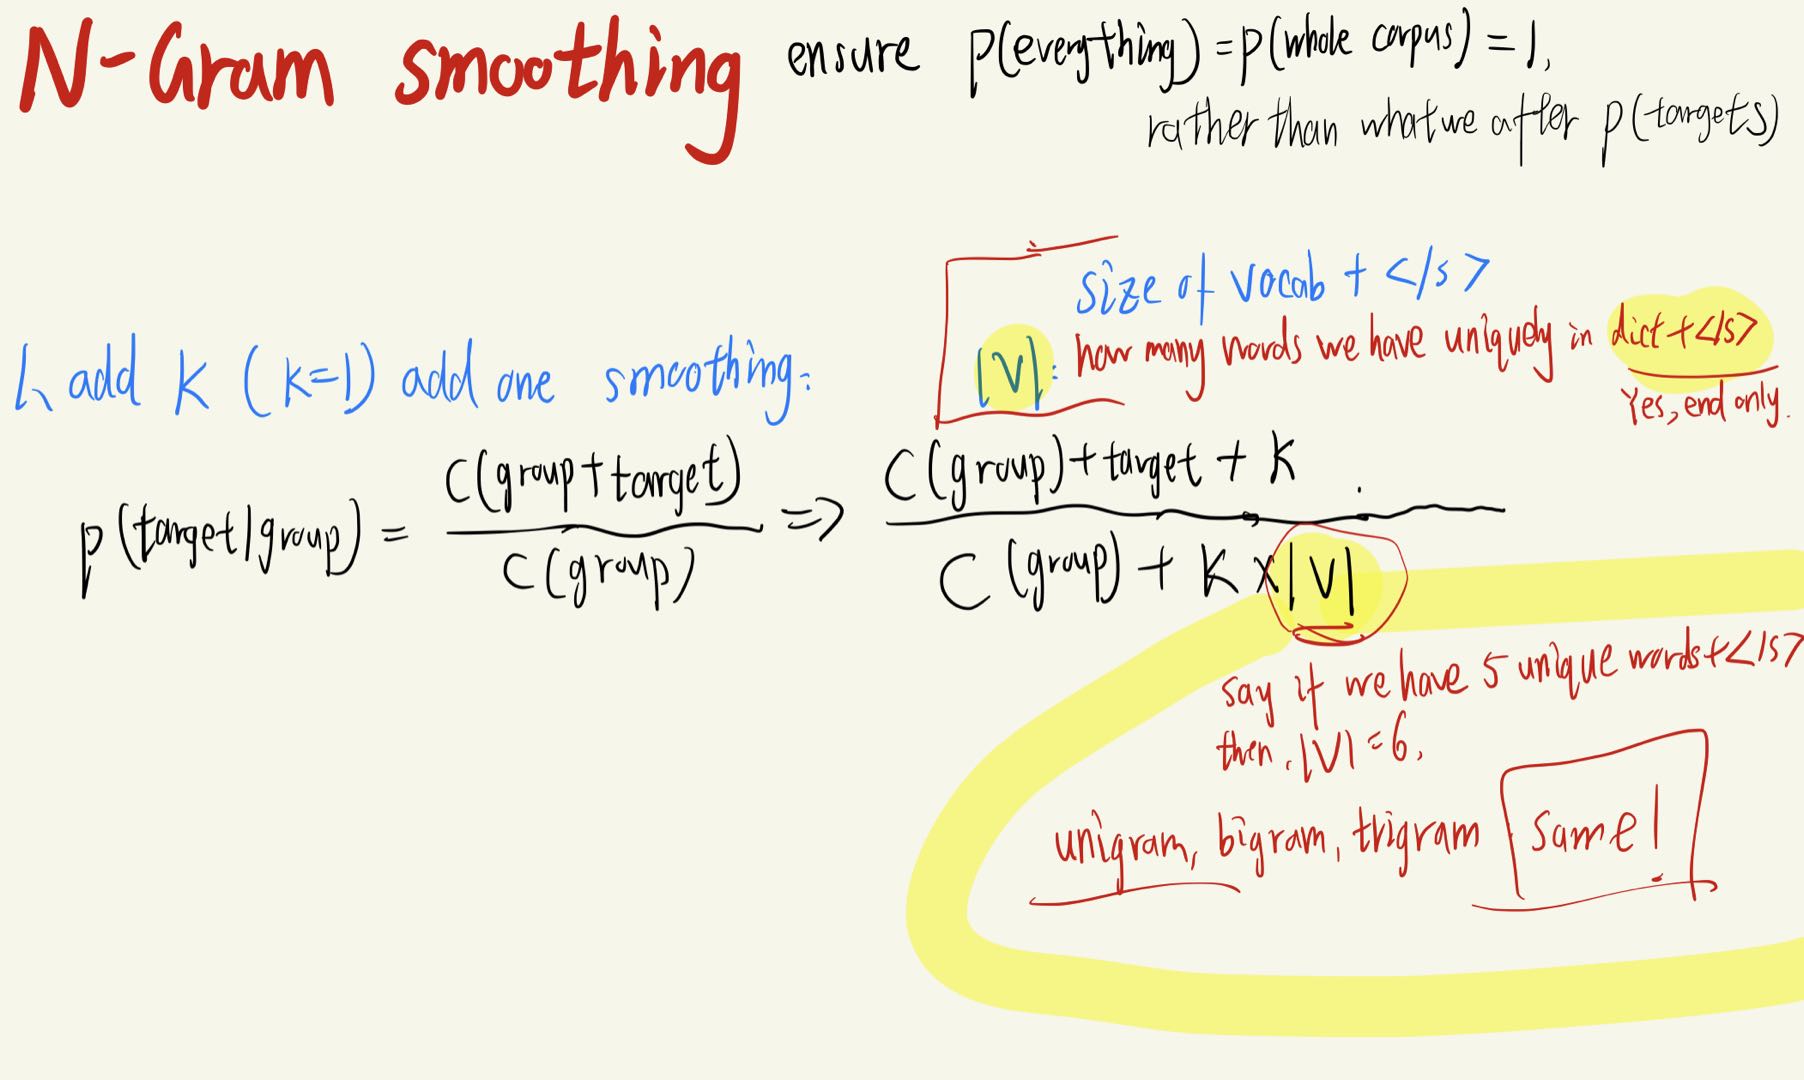 N-Gram smoothing ensure p(everything) = p(whole corpus) = 1,
rather than what we after p(targets)
size of vocab + </s>
|V|: how many words we have uniquely in dict + </s>
Yes, end only.
1, add K (K=1) add one smoothing:
p(target|group) = C(group+target) / C(group) => C(group)+target + K / C(group) + K × |V|
say if we have 5 unique words + </s>
then, |V| = 6,
unigram, bigram, trigram same!